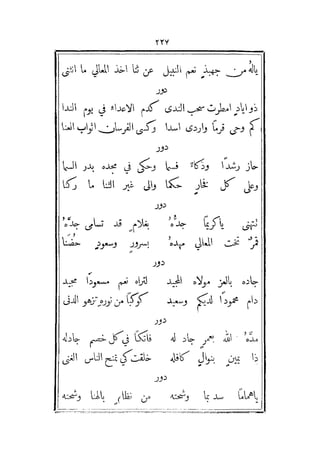 ٢٢٧
يالهُ من جهبذٍ نعم النبيل عن ثنا اخذ المعالي ما انثنى
دور
ذو ايادٍ امطرت سحب الندى كدم الاعداء في يوم الندا
كم وحى قرماً واردى اسدا وكسى الفرسان اثواب العنا
دور
حاز رشداً وذكاءً فسما وحكى في مجده بدر السما
وعلى كل فخارٍ حكما والى غير الثنا ما ركنا
دور
لتهنى ياكريماً جدُّهُ بغلامٍ قد تسامى جدُّهُ
قمرٌ تخت المعالي مهدهُ بسرورٍ وسعودٍ حُضنا
دور
جاده بالعز مولاه المجيد لتراه نعم مسعوداً مجيد
دام محموداً لديكم وسعيد كوكباً من نوره تزهو الدنى
دور
مدَّهُ الله بعمرٍ جاد له فاتكاً في كل خصم جادله
ذا يمينٍ بنوالٍ كافله خلقت كي تمنح الناس الغنى
دور
ياهماماً سد بما وشحنه من نظامٍ بالهنا وشحنه